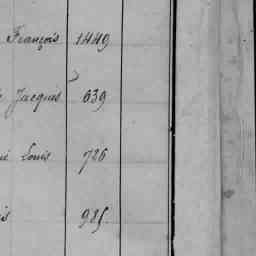 François 1449
Jacques 639
Louis 726
985